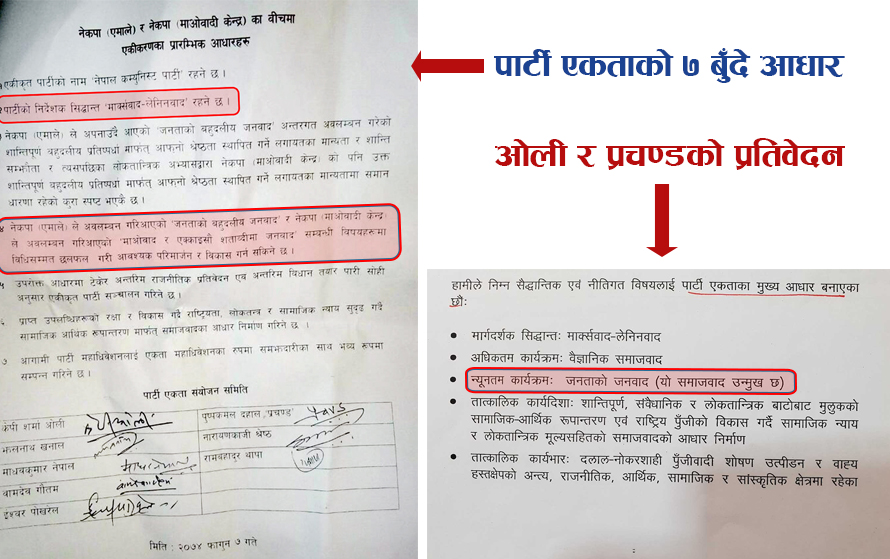 नेकपा (एमाले) र नेकपा (माओवादी केन्द्र) का वीचमा
एकीकरणका प्रारम्भिक आधारहरू
एकीकृत पार्टीको नाम 'नेपाल कम्युनिस्ट पार्टी' रहने छ ।
पार्टीको निर्देशक सिद्धान्त 'मार्क्सवाद-लेनिनवाद' रहने छ ।
नेकपा (एमाले) ले अपनाउदै आएको 'जनताको बहुदलीय जनवाद' अन्तरगत अवलम्बन गरेको
शान्तिपूर्ण बहुदलीय प्रतिष्पर्धा मार्फत आफ्नो श्रेष्ठता स्थापित गर्ने लगायतका मान्यता र शान्ति
सम्झौता र त्यसपछिका लोकतान्त्रिक अभ्यासद्वारा नेकपा (माओवादी केन्द्र) को पनि उक्त
शान्तिपूर्ण बहुदलीय प्रतिष्पर्धा मार्फत् आफ्नो श्रेष्ठता स्थापित गर्ने लगायतका मान्यतामा समान
धारणा रहेको कुरा स्पष्ट भएकै छ ।
४ नेकपा (एमाले) ले अवलम्बन गरिआएको 'जनताको बहुदलीय जनवाद' र नेकपा (माओवादी केन्द्र)
ले अवलम्बन गरिआएको 'माओवाद र एक्काइसौ शताब्दीमा जनवाद' सम्बन्धी विषयहरूमा
विधिसम्मत छलफल गरी आवश्यक परिमार्जन र विकास गर्न सकिने छ ।
५ उपरोक्त आधारमा टेकेर अन्तरिम राजनीतिक प्रतिवेदन एवं अन्तरिम विधान तयार पारी सोही
अनुसार एकीकृत पार्टी सञ्चालन गरिने छ ।
६ प्राप्त उपलब्धिहरूको रक्षा र विकास गर्दै राष्ट्रियता, लोकतन्त्र र सामाजिक न्याय सुदृढ गर्दै
सामाजिक आर्थिक रूपान्तरण मार्फत् समाजवादका आधार निर्माण गरिने छ ।
७ आगामी पार्टी महाधिवेशनलाई एकता महाधिवेशनका रुपमा समझदारीका साथ भव्य रूपमा
सम्पन्न गरिने छ ।
पार्टी एकता संयोजन समिति
केपी शर्मा ओली पुष्पकमल दाहाल, 'प्रचण्ड'
झलनाथ खनाल नारायणकाजी श्रेष्ठ
माधवकुमार नेपाल रामबहादुर थापा
बामदेव गौतम
इश्वर पोखरेल
मिति : २०७४ फागुन ७ गते
पार्टी एकताको ७ बुँदे आधार
ओली र प्रचण्डको प्रतिवेदन
हामीले निम्न सैद्धान्तिक एवं नीतिगत विषयलाई पार्टी एकताका मुख्य आधार बनाएका
छौः
• मार्गदर्शक सिद्धान्तः मार्क्सवाद-लेनिनवाद
• अधिकतम कार्यक्रमः वैज्ञानिक समाजवाद
• न्यूनतम कार्यक्रमः जनताको जनवाद (यो समाजवाद उन्मुख छ)
• तात्कालिक कार्यदिशाः शान्तिपूर्ण, संवैधानिक र लोकतान्त्रिक बाटोबाट मुलुकको
सामाजिक-आर्थिक रूपान्तरण एवं राष्ट्रिय पुँजीको विकास गर्दै सामाजिक न्याय
र लोकतान्त्रिक मूल्यसहितको समाजवादको आधार निर्माण
• तात्कालिक कार्यभारः दलाल-नोकरशाही पुँजीवादी शोषण उत्पीडन र वाह्य
हस्तक्षेपको अन्त्य, राजनीतिक, आर्थिक, सामाजिक र सांस्कृतिक क्षेत्रमा रहेका